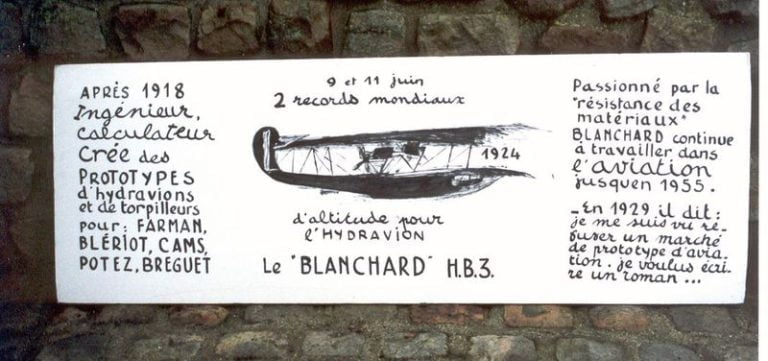 APRÈS 1918
Ingénieur,
calculateur
Crée des
PROTOTYPES
d'hydravions
et de torpilleurs
pour: FARMAN,
BLÉRIOT, CAMS,
POTEZ, BREGUET
9 et 11 juin
2 records mondiaux
1924
d'altitude pour
l'HYDRAVION
Le "BLANCHARD" H.B.3.
Passionné par la
"résistance des
matériaux"
BLANCHARD continue
à travailler dans
l'aviation
jusquen 1955.
_En 1929 il dit:
je me suis vu re-
fuser un marché
de prototype d'avia-
tion. je voulus écri-
re un roman...